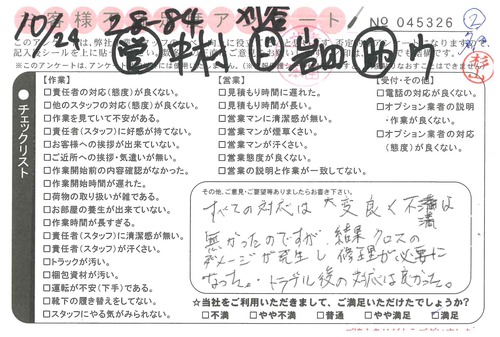 お客様アンケート
10/24
28-84 刈谷
NO 045326
②
営 中村 ド 岩田
杉山
チェックリスト
【作業】
□責任者の対応(態度)が良くない。
□他のスタッフの対応(態度)が良くない。
□作業を見ていて不安がある。
□責任者(スタッフ)に好感が持てない。
□お客様への挨拶が出来ていない。
□ご近所への挨拶・気遣いが無い。
□作業開始前の内容確認がなかった。
□作業開始時間が遅れた。
□荷物の取り扱いが雑である。
□お部屋の養生が出来ていない。
□作業時間が長すぎる。
□責任者(スタッフ)に清潔感が無い。
□責任者(スタッフ)が汗くさい。
□トラックが汚い。
□梱包資材が汚い。
□運転が不安(下手)である。
□靴下の履き替えをしてない。
□スタッフにやる気がみられない。
【営業】
□見積もり時間に遅れた。
□見積もり時間が長い。
□営業マンに清潔感が無い。
□営業マンが煙草くさい。
□営業マンが汗くさい。
□営業態度が良くない。
□営業の説明と作業が一致してない。
【受付・その他】
□電話の対応が良くない。
□オプション業者の説明・作業が良くない。
□オプション業者の対応(態度)が良くない。
その他、ご意見・ご要望等ありましたらお書き下さい。
すべての対応は大変良く不満は
無かったのですが、結果クロスの
ダメージが発生し修理が必要に
なった。トラブル後の対応は良かった。
☆当社をご利用いただきまして、ご満足いただけたでしょうか?
□不満 □やや不満 □普通 □やや満足 ☑満足